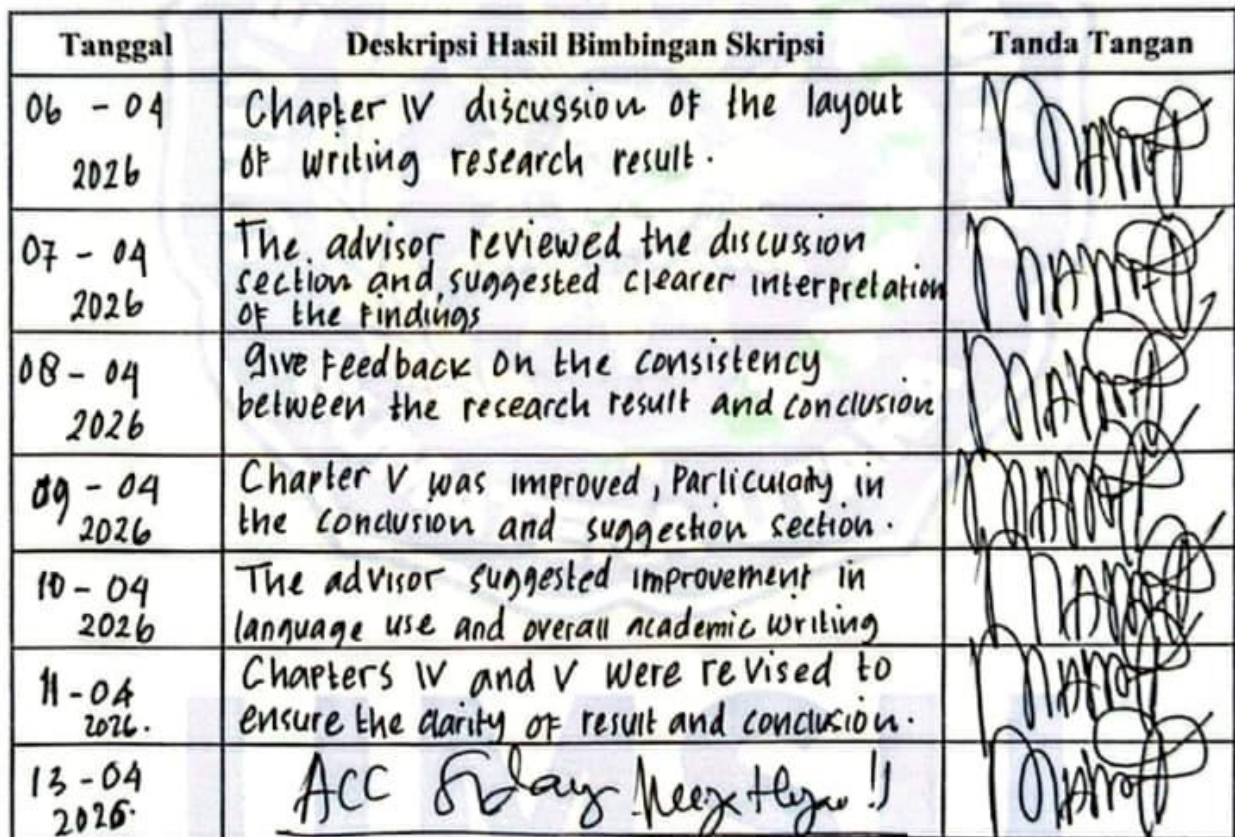 Tanggal Deskripsi Hasil Bimbingan Skripsi Tanda Tangan
06 - 04 Chapter IV discussion of the layout
2026 of writing research result.
07 - 04 The advisor reviewed the discussion
section and suggested clearer interpretation
2026 of the findings
08 - 04 give feedback on the consistency
2026 between the research result and conclusion
09 - 04 Chapter V was improved, Particularly in
2026 the conclusion and suggestion section.
10 - 04 The advisor suggested improvement in
2026 language use and overall academic writing
11 - 04 Chapters IV and V were revised to
2026. ensure the clarity of result and conclusion.
13 - 04 ACC
2026.